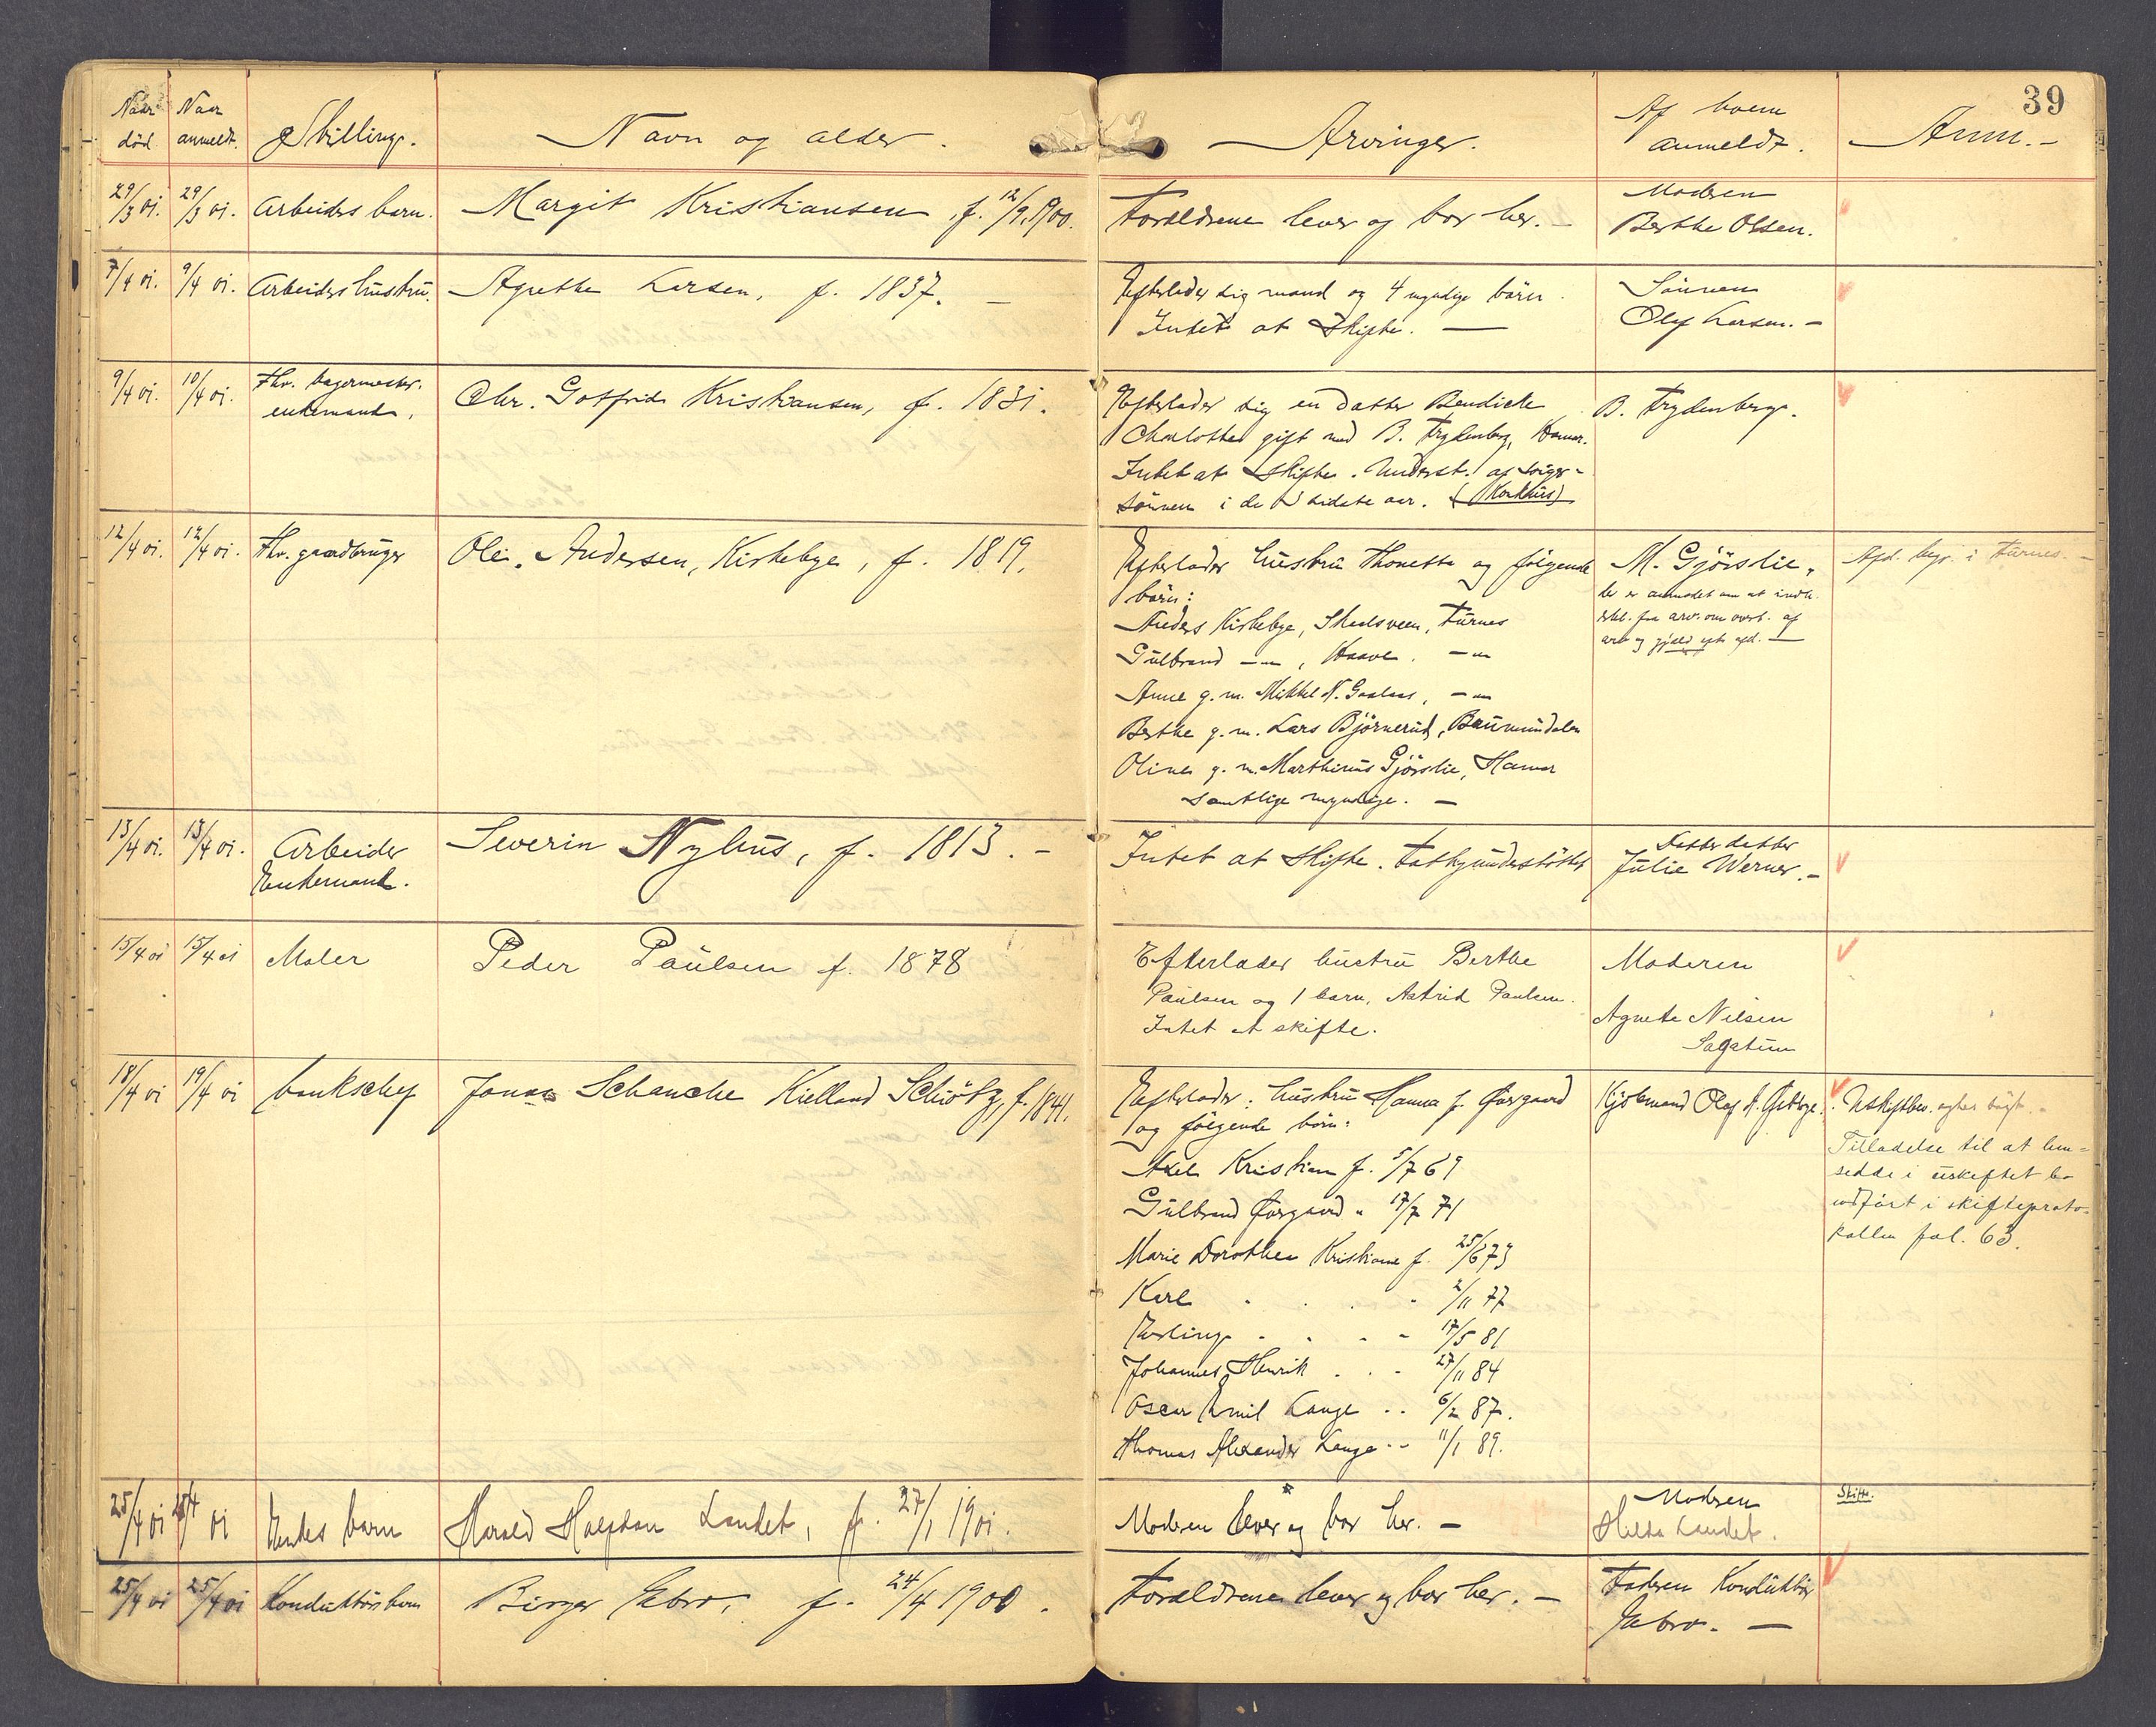 39
Naar død. Naar anmeldt. Stilling. Navn og alder. Arvinger. Af hvem anmeldt. Anm. -
29/3 01. 29/3 01. Arbeiders barn. Margit Kristiansen, f. 12/9 1900. Forældrene lever og bor her. - Moderen
Berthe Olsen.
7/4 01. 9/4 01. Arbeiders hustru. Agnethe Larsen, f. 1837. - Efterlader sig mand og 4 myndige børn. Sønnen
Intet at skifte. - Olaf Larsen. -
9/4 01. 10/4 01. Fhv. bagermester, Chr. Gotfrid Kristiansen, f. 1831. Efterlader sig en datter Bendicte B. Frydenberg.
enkemand. Charlotte gift med B. Frydenberg, Hamar.
Intet at skifte. Underst. af sviger-
sønnen i de sidste aar.
12/4 01. 12/4 01. Fhv. gaardbruger Ole Andersen, Kirkebye, f. 1819. Efterlader hustru Thonette og følgende M. Gjørslie, Afd. begr. i Furnes. -
børn: der er anmodet om at indh.
Anders Kirkebye, Skulsveen, Furnes skl. fra arv. om overt. af
Gulbrand -"-, Haave. -"- arv og gjæld eft. afd. -
Anne g. m. Mikkel N. Gaalaas, -"-
Berthe g. m. Lars Bjørnerud, Brumundalen
Oline g. m. Marthinus Gjørslie, Hamar
samtlige myndige. -
13/4 01. 13/4 01. Arbeider Severin Nyhus, f. 1813. - Intet at skifte. Fattigunderstøttet Datterdatter
Enkemand. Julie Werner. -
15/4 01 15/4 01 Maler Peder Paulsen f. 1878 Efterlader hustru Berthe Moderen
Paulsen og 1 barn, Astrid Paulsen. Agnete Nilsen
Intet at skifte. Sagatun
18/4 01 19/4 01 bankschef Jonas Schanche Kielland Schiøtz, f. 1841. Efterlader: hustru Hanna f.Ørgaard Kjøbmand Olaf A. Uskiftbev.
og følgende børn: Tilladelse til at hen-
Axel Kristian f. 5/7 69 sidde i uskiftet bo
Gulbrand Ørgaard " 17/7 71 indført i skifteproto-
Marie Dorothea Kristiane f. 25/6 73 kollen fol. 63.
Karl " 2/11 77
Erling " 17/5 81
Johannes Henrik " 27/11 84
Oscar Emil Lange " 6/2 87.
Thomas Alexander Lange " 11/1 89.
25/4 01 25/4 01 Uægtes barn Harald Halfdan Landet, f. 27/1 1901. Moderen lever og bor her. - Moderen Skifte.
Hilda Landet.
25/4 01 25/4 01 Konduktørs barn Birger Gebro, f. 24/4 1900. Forældrene lever og bor her. - Faderen Konduktør
Gebro. -